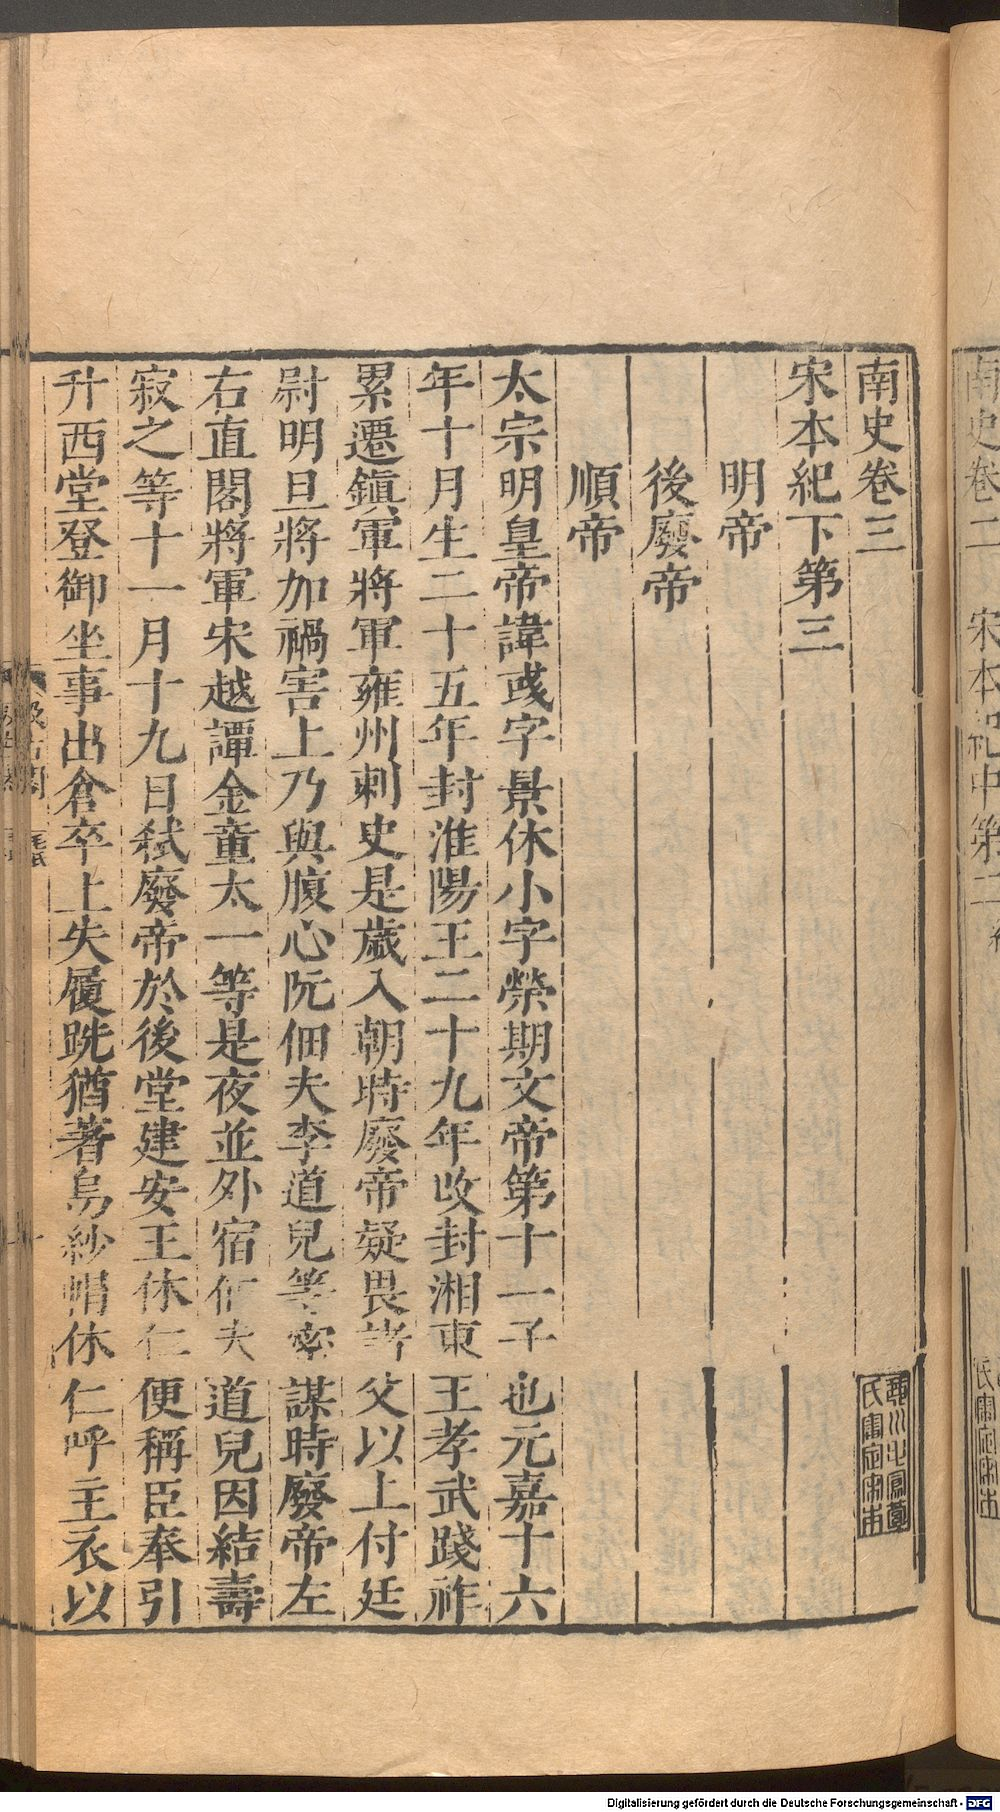 南史卷三
宋本紀下第三
明帝
後廢帝
順帝
太宗明皇帝諱彧字景休小字榮期文帝第十一子也元嘉十六
年十月生二十五年封淮陽王二十九年改封湘東王孝武踐祚
累遷鎮軍將軍雍州刺史是歲入朝時廢帝疑畏諸父以上付廷
尉明旦將加禍害上乃與腹心阮佃夫李道兒等密謀時廢帝左
右直閤將軍宋越譚金童太一等是夜並外宿佃夫道兒因結壽
寂之等十一月十九日弒廢帝於後堂建安王休仁便稱臣奉引
升西堂登御坐事出倉卒上失履跣猶著烏紗帽休仁呼主衣以
汲古閣
毛氏
南史卷二
宋本紀中第二
Digitalisierung gefördert durch die Deutsche Forschungsgemeinschaft - DFG